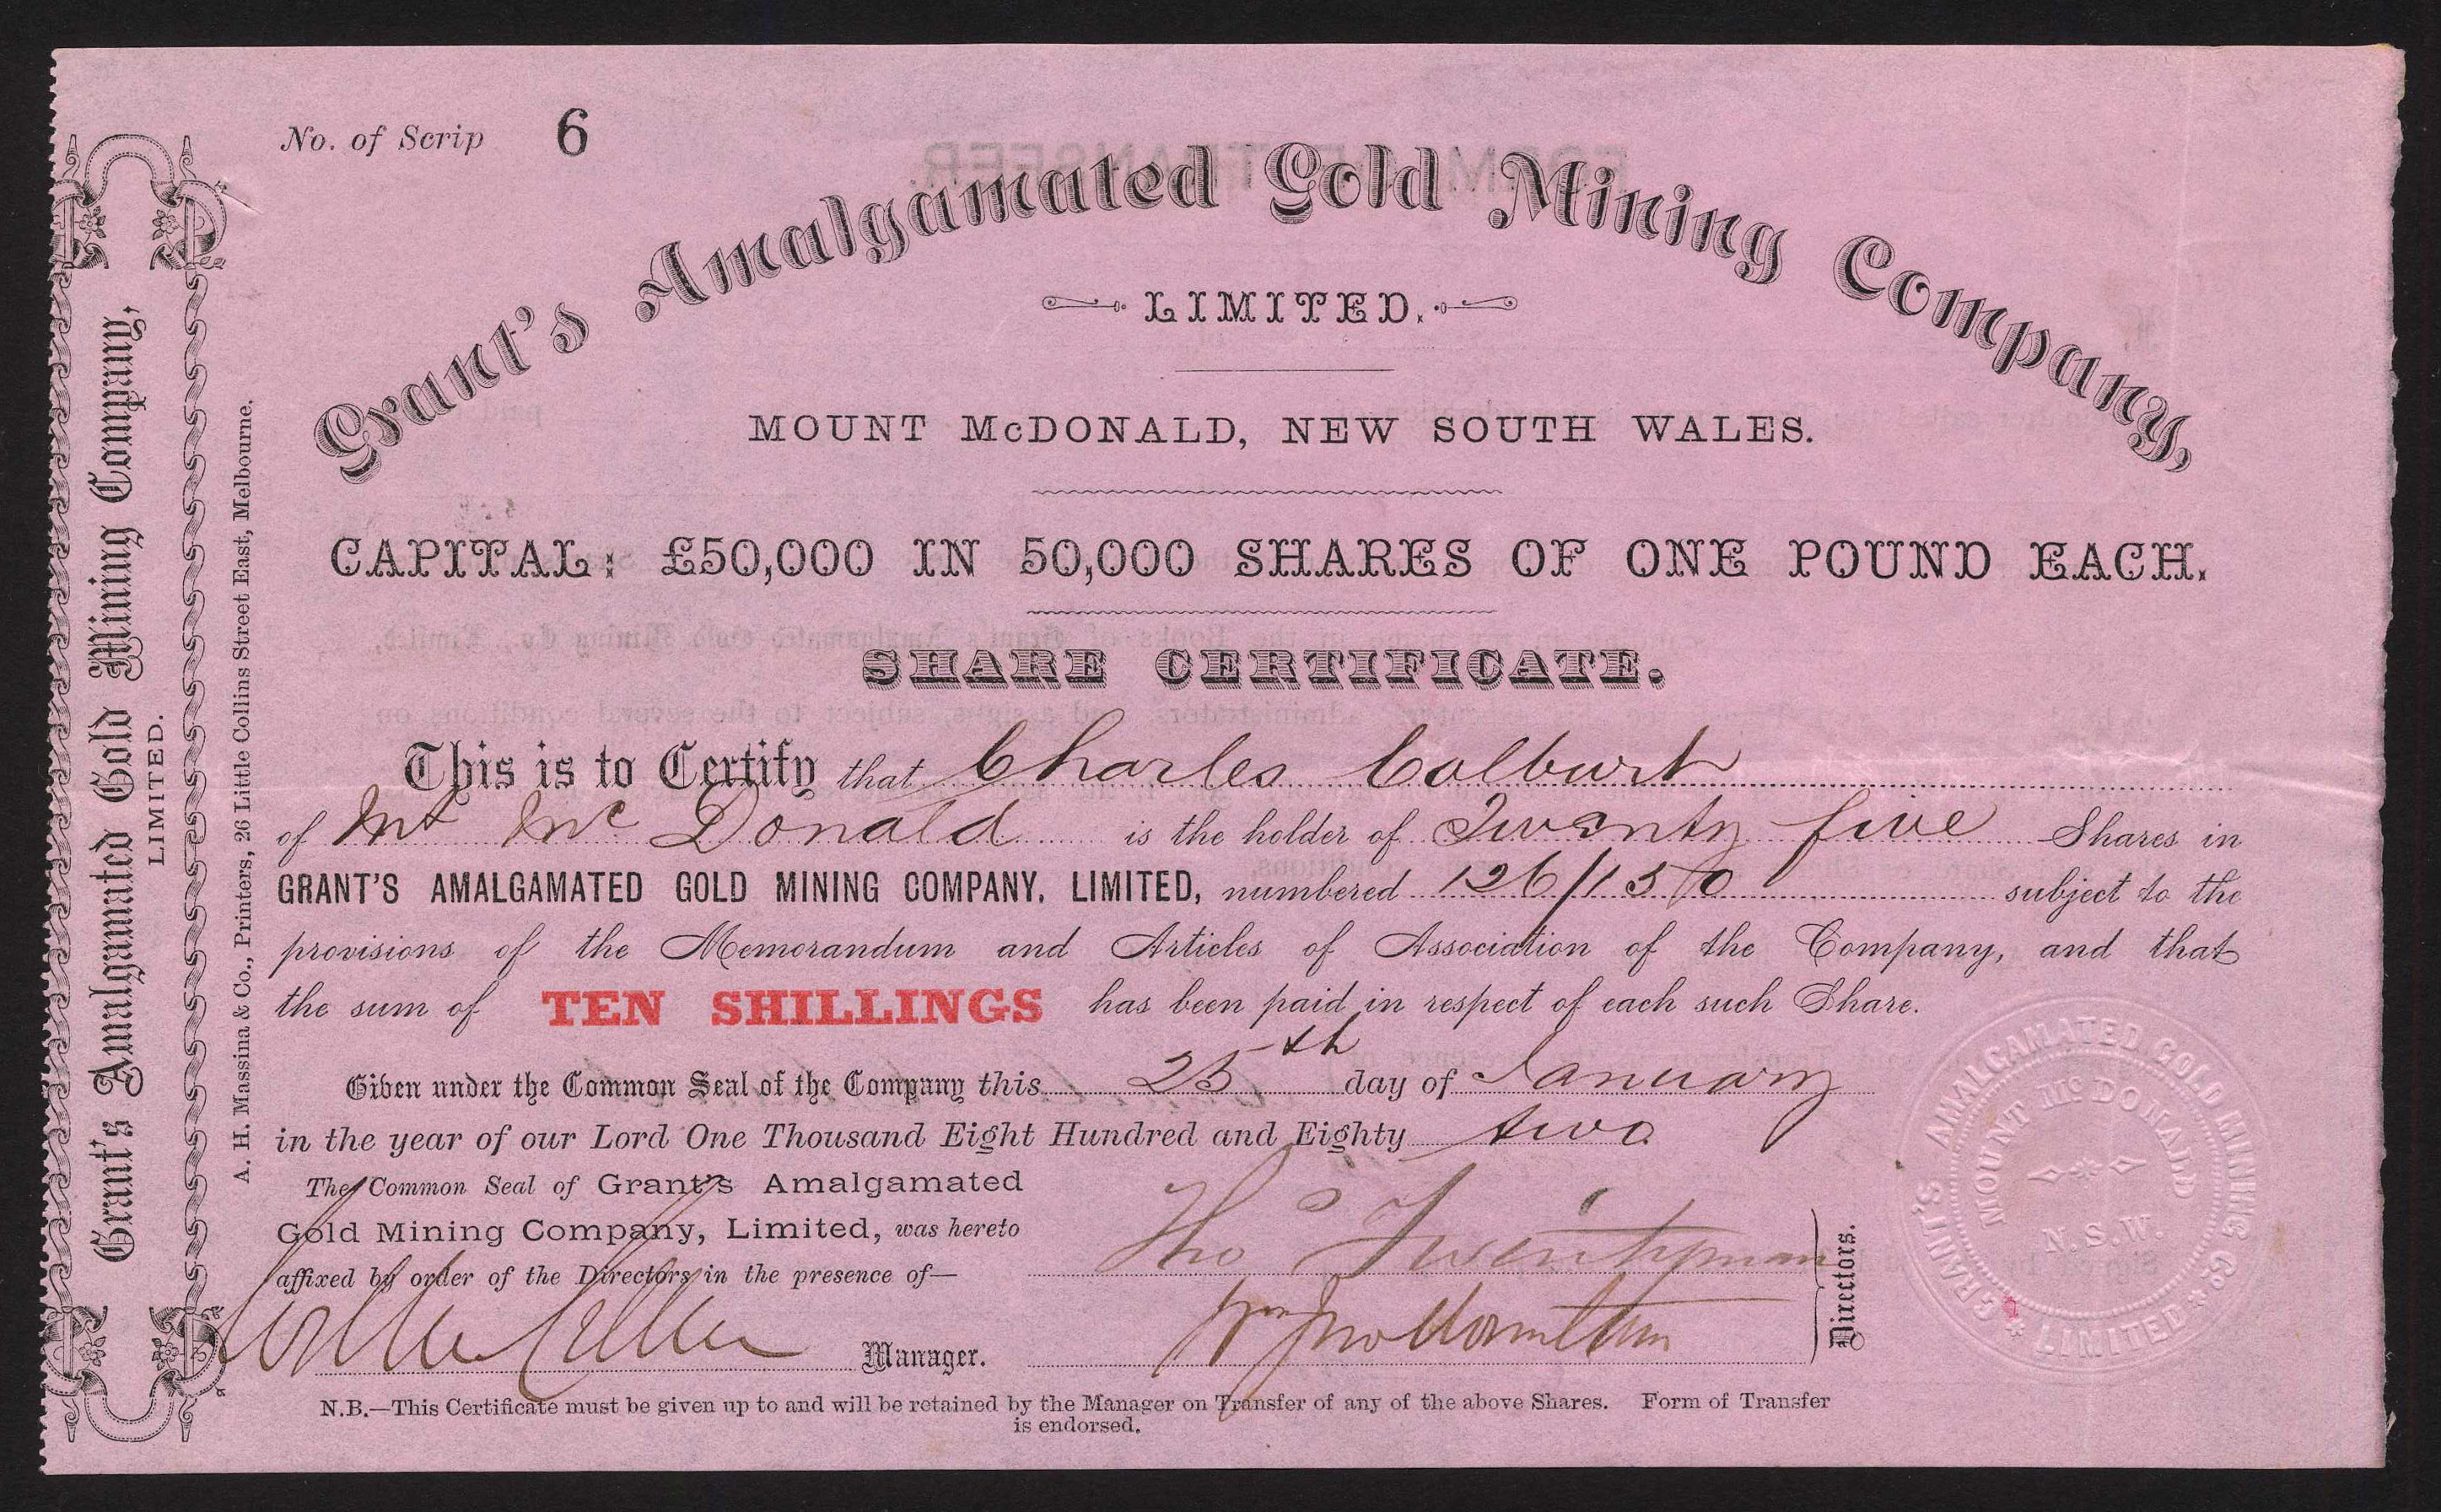 No. of Scrip 6
Grant's Amalgamated Gold Mining Company,
LIMITED.
MOUNT McDONALD, NEW SOUTH WALES.
CAPITAL: £50,000 IN 50,000 SHARES OF ONE POUND EACH.
SHARE CERTIFICATE.
This is to Certify that Charles Colburt
of Mt Mc Donald is the holder of Twenty five Shares in
GRANT'S AMALGAMATED GOLD MINING COMPANY, LIMITED, numbered 126/150 subject to the
provisions of the Memorandum and Articles of Association of the Company, and that
the sum of TEN SHILLINGS has been paid in respect of each such Share.
Given under the Common Seal of the Company this 25th day of January
in the year of our Lord One Thousand Eight Hundred and Eighty two
The Common Seal of Grant's Amalgamated
Gold Mining Company, Limited, was hereto
affixed by order of the Directors in the presence of—
Manager.
Thos Twentyman
Directors.
N.B.—This Certificate must be given up to and will be retained by the Manager on Transfer of any of the above Shares. Form of Transfer
is endorsed.
Grant's Amalgamated Gold Mining Company,
LIMITED.
A. H. Massina & Co., Printers, 26 Little Collins Street East, Melbourne.
GRANT'S AMALGAMATED GOLD MINING Co LIMITED
MOUNT Mc DONALD
N.S.W.